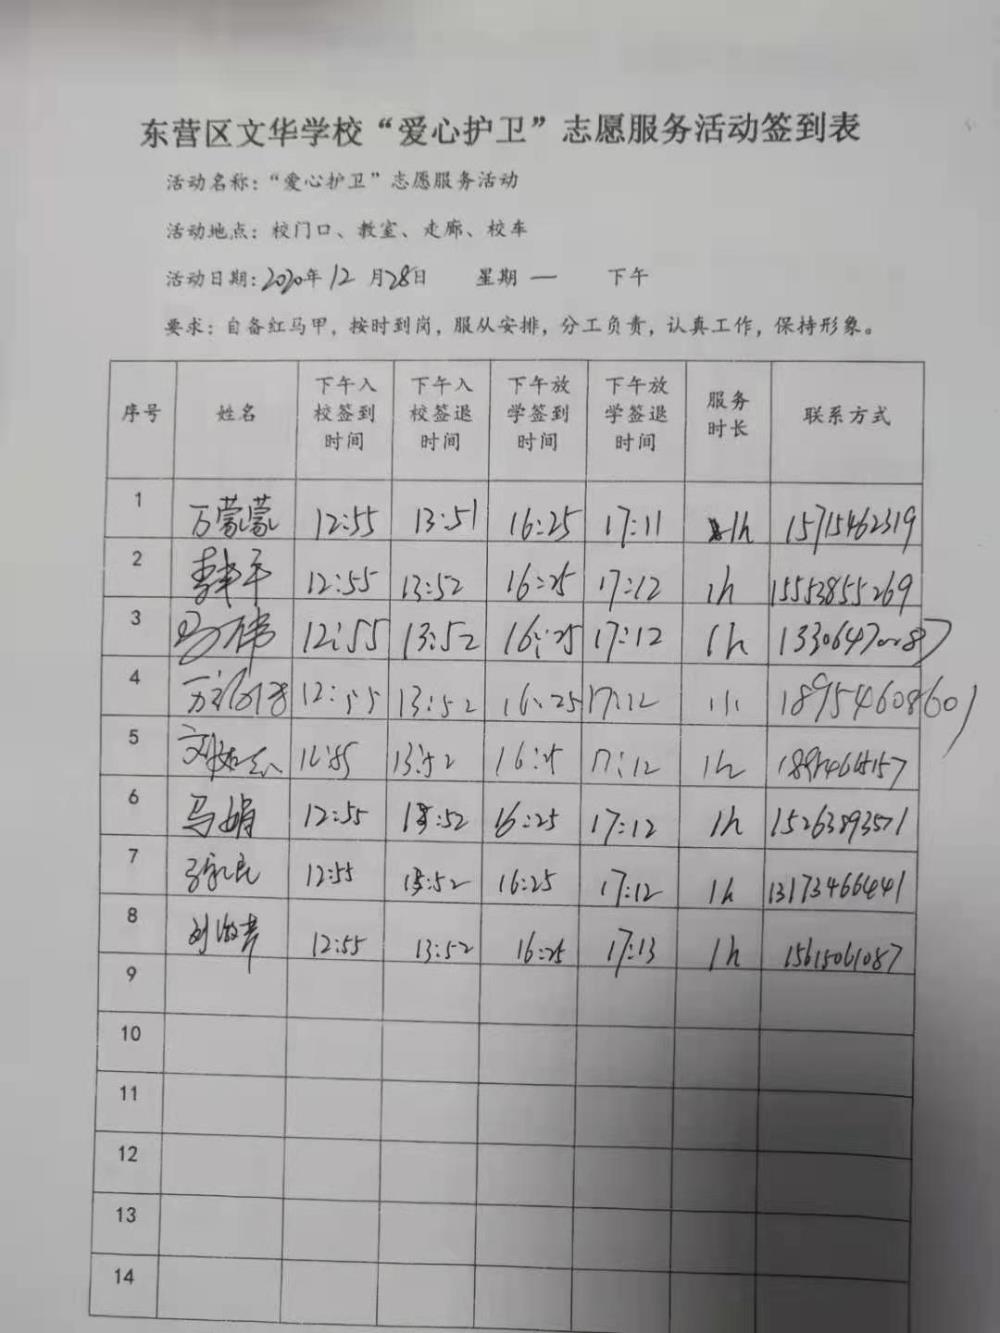 东营区文华学校“爱心护卫”志愿服务活动签到表
活动名称：“爱心护卫”志愿服务活动
活动地点：校门口、教室、走廊、校车
活动日期：2020年12月28日 星期一 下午
要求：自备红马甲，按时到岗，服从安排，分工负责，认真工作，保持形象。
序号 姓名 下午入校签到时间 下午入校签退时间 下午放学签到时间 下午放学签退时间 服务时长 联系方式
1 万蒙蒙 12:55 13:51 16:25 17:11 1h 15715462319
2 12:55 13:52 16:25 17:12 1h 15553855269
3 马伟 12:55 13:52 16:25 17:12 1h
4 12:55 13:52 16:25 17:12 1h 18954608601
5 12:55 13:52 16:25 17:12 1h
6 马娟 12:55 13:52 16:25 17:12 1h 15263893571
7 12:55 13:52 16:25 17:12 1h 13173466441
8 12:55 13:52 16:25 17:13 1h 15615061087
9
10
11
12
13
14